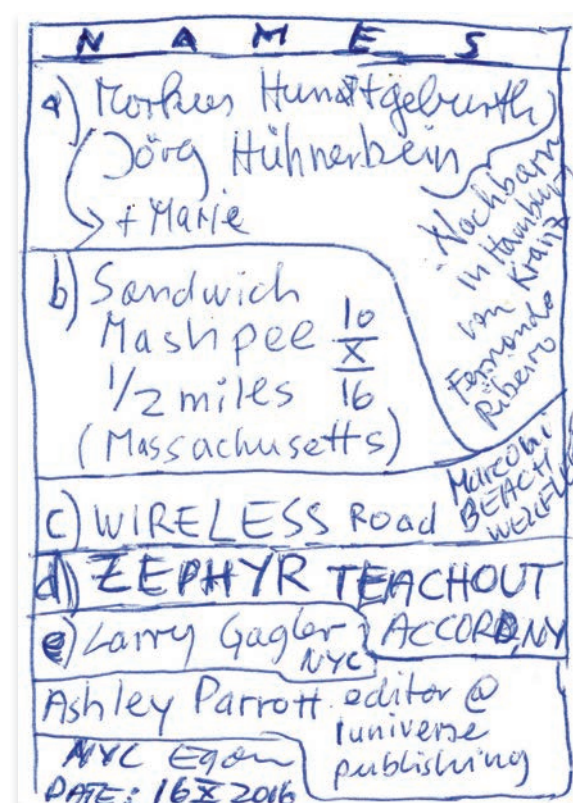 NAMES
a) Markus Hundtgeburth
Jörg Hühnerbein
+ Marie
Nachbarn
in Hamburg
von Kranz
Fernando
Ribeiro
b) Sandwich
Mashpee 10
1/2 miles X
(Massachusetts) 16
c) WIRELESS Road
Marconi
BEACH
d) ZEPHYR TEACHOUT
ACCORD, NY
e) Larry
NYC
Ashley Parrott editor @
iuniverse
publishing
NYC Egon
DATE: 16 X 2016